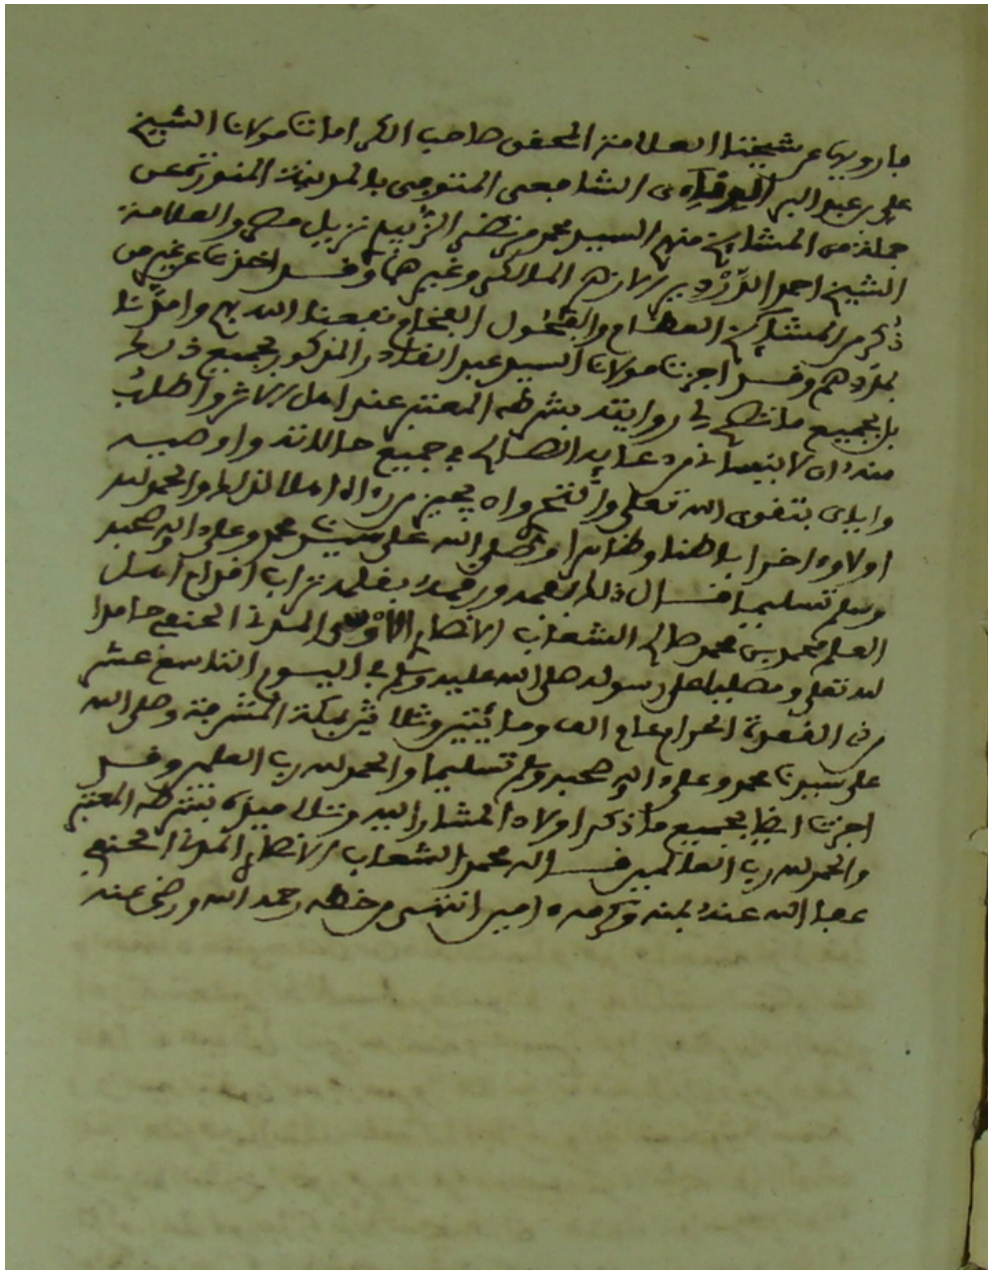 ما رويها عن شيخنا العلامة المحقق صاحب الكرامات مولانا الشيخ
علي بن عبد البر الونائي الشافعي المتوفى بالمدينة المنورة عن
جملة من المشايخ منهم السيد محمد مرتضى الزبيدي نزيل مصر والعلامة
الشيخ احمد الدردير الازهري المالكي وغيرهما وقد اخذنا عن غير من
ذكر من المشايخ العظام والفحول الفخام نفعنا الله بهم وامدنا
بمددهم وقد اجزت مولانا السيد عبد القادر المذكور بجميع ذلك
بل بجميع ما تصح لي روايته بشرطه المعتبر عند اهل الاثر واطلب
منه ان لا ينساني من دعايه الصالح في جميع حالاته واوصيه
واياي بتقوى الله تعلى والنصح وان يجيز من راه اهلا لذلك والحمد لله
اولا واخرا باطنا وظاهرا وصلى الله على سيدنا محمد وعلى اله وصحبه
وسلم تسليما قال ذلك بفمه ورقمه بقلمه تراب اقدام اهل
العلم محمد بن محمد صالح الشعاب الانصاري المدني الحنفي حامدا
لله تعلى ومصليا على رسوله صلى الله عليه وسلم في اليوم التاسع عشر
من ذي القعدة الحرام عام الف ومائتين وثلاثين بمكة المشرفة وصلى الله
على سيدنا محمد وعلى اله وصحبه وسلم تسليما والحمد لله رب العلمين وقد
اجزت ايضا بجميع ما ذكر اولاد المشار اليه وتلاميذه بشرطه المعتبر
والحمد لله رب العالمين قاله محمد الشعاب الانصاري المدني الحنفي
عفا الله عنه بمنه وكرمه امين انتهى من خطه رحمه الله ورضي عنه